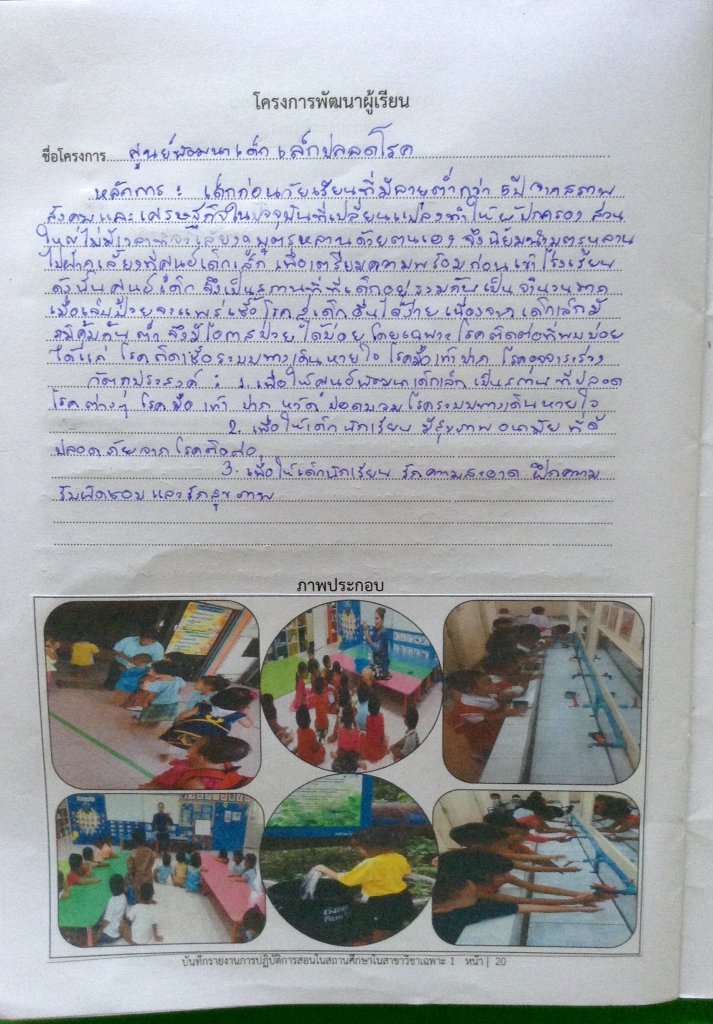 โครงการพัฒนาผู้เรียน
ชื่อโครงการ ศูนย์พัฒนาเด็กเล็กปลอดโรค
หลักการ : เด็กก่อนวัยเรียนที่มีอายุต่ำกว่า 5 ปี จากสภาพ
สังคมและเศรษฐกิจในปัจจุบันที่เปลี่ยนแปลงทำให้ผู้ปกครอง ส่วน
ใหญ่ไม่มีเวลาที่จะเลี้ยงดูบุตรหลานด้วยตนเอง จึงนิยมนำบุตรหลาน
ไปฝากเลี้ยงที่ศูนย์เด็กเล็ก เพื่อเตรียมความพร้อมก่อนเข้าโรงเรียน
ดังนั้นศูนย์เด็ก จึงเป็นสถานที่ที่เด็กอยู่รวมกันเป็นจำนวนมาก
เมื่อเจ็บป่วยจะแพร่เชื้อโรคสู่เด็กอื่นได้ง่าย เนื่องจาก เด็กเล็กมี
ภูมิคุ้มกันต่ำ จึงมีโอกาสป่วยได้บ่อย โดยเฉพาะโรคติดต่อที่พบบ่อย
ได้แก่ โรคติดเชื้อระบบทางเดินหายใจ โรคมือเท้าปาก โรคอุจจาระร่วง
วัตถุประสงค์ : 1. เพื่อให้ศูนย์พัฒนาเด็กเล็ก เป็นสถานที่ปลอด
โรคต่างๆ โรคมือ เท้า ปาก หวัด ปอดบวม โรคระบบทางเดินหายใจ
2. เพื่อให้เด็กนักเรียน มีสุขภาพอนามัย ที่ดี
ปลอดภัยจากโรคติดต่อ
3. เพื่อให้เด็กนักเรียน รักความสะอาด ฝึกความ
รับผิดชอบ และรักสุขภาพ
ภาพประกอบ
บันทึกรายงานการปฏิบัติการสอนในสถานศึกษาในสาขาวิชาเฉพาะ 1 หน้า | 20